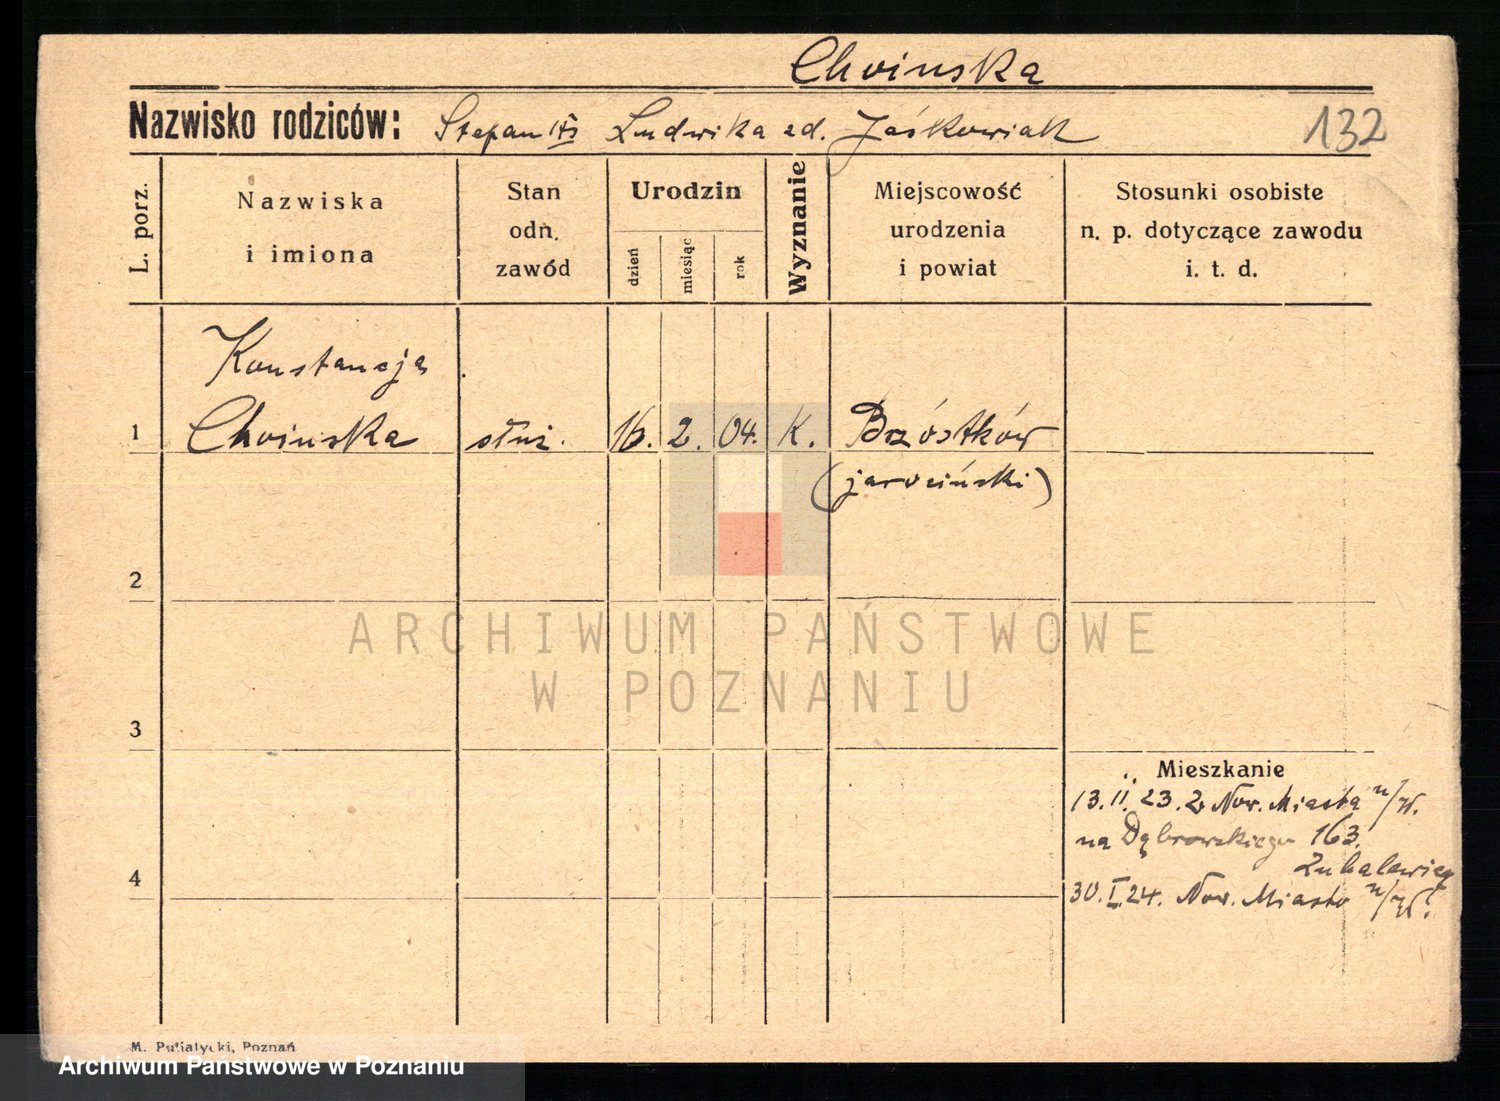 Choinska
Nazwisko rodziców: Stepan Ludwika zd. Jaśkowiak
132
L. porz.
Nazwiska
i imiona
Stan
odn.
zawód
Urodzin
dzień
miesiąc
rok
Wyznanie
Miejscowość
urodzenia
i powiat
Stosunki osobiste
n. p. dotyczące zawodu
i. t. d.
Konstancja
1 Choinska służ. 16. 2. 04. K. Brzóstków
(jarociński)
2
ARCHIWUM PAŃSTWOWE
W POZNANIU
3
Mieszkanie
13.II.23. z Now. Miasta n/W.
na Dąbrowskiego 163.
4
30.I.24. Now. Miasto n/W.
M. Putiatycki, Poznań
Archiwum Państwowe w Poznaniu